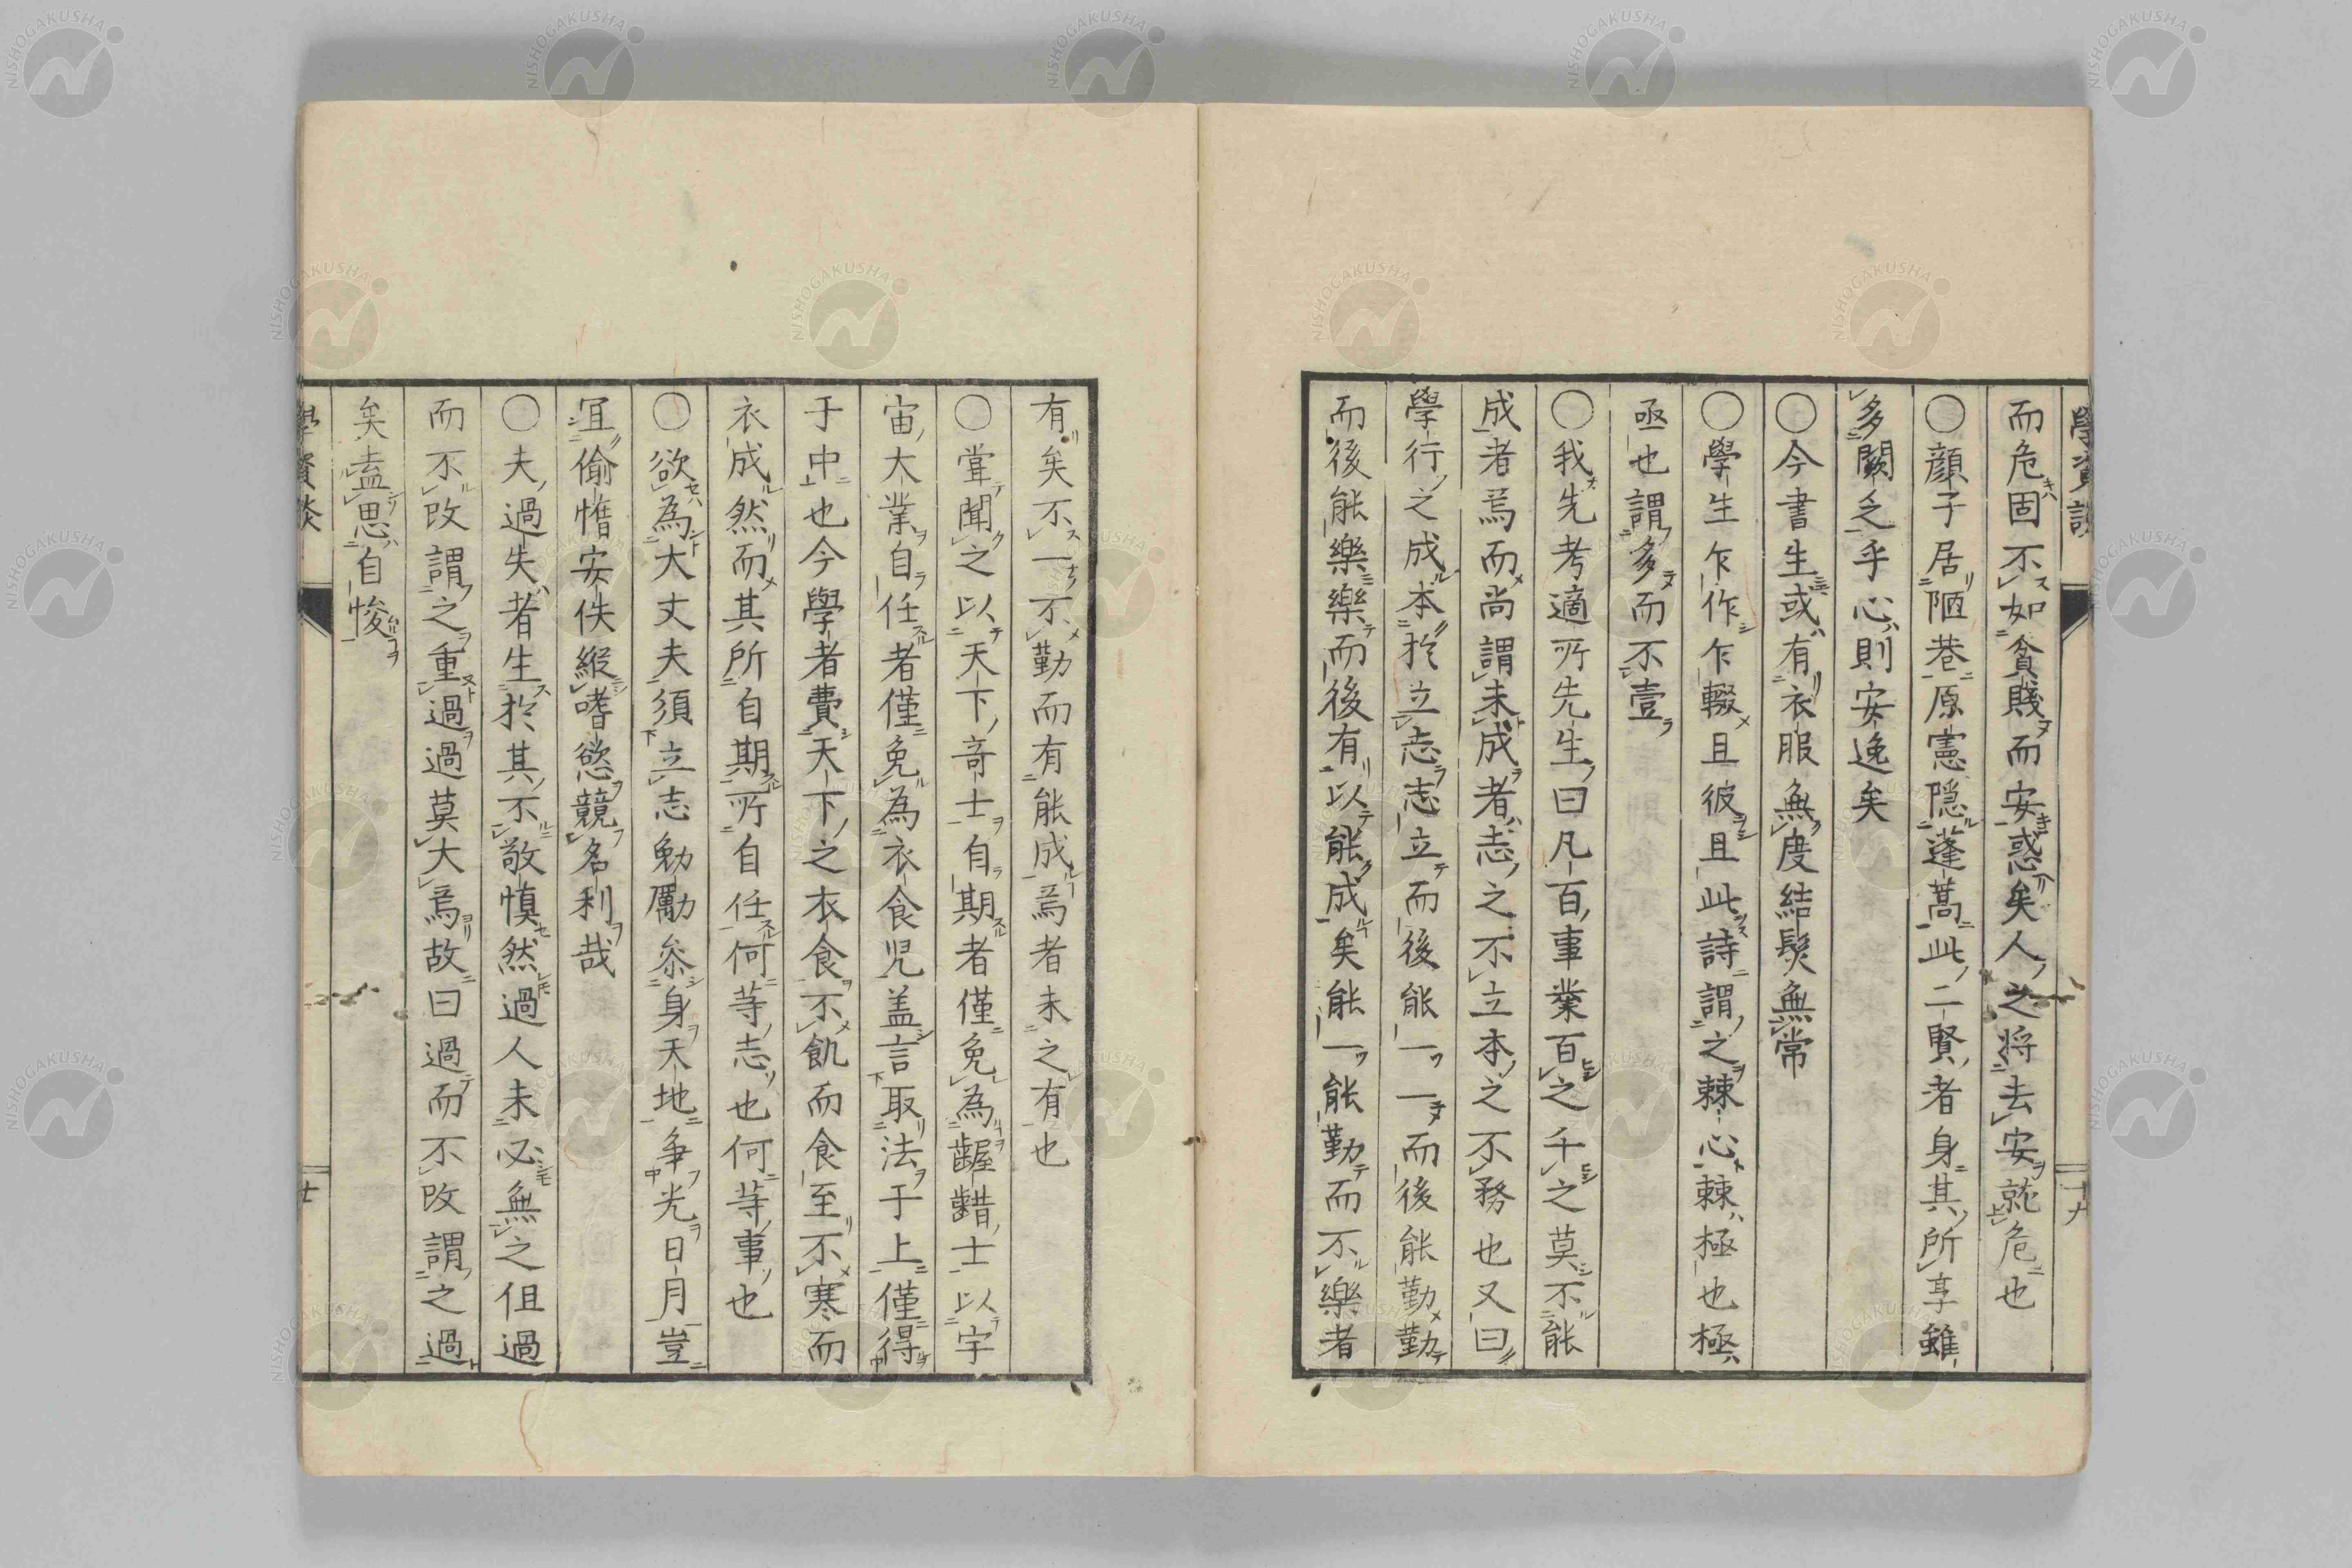 而危固不如貧賤而安惑矣人之将去安就危也
〇顔子居陋巷原憲隠蓬蒿此二賢者身其所享雖
多闕乏乎心則安逸矣
〇今書生或有衣服無度結髮無常
〇學生乍作乍輟且彼且此詩謂之棘心棘極也極
亟也謂多而不壹
〇我先考適所先生曰凡百事業百之千之莫不能
成者焉而尚謂未成者志之不立本之不務也又曰
學行之成本於立志志立而後能一一而後能勤勤
而後能樂樂而後有以能成矣能一能勤而不樂者
有矣不一不勤而有能成焉者未之有也
〇甞聞之以天下奇士自期者僅免為齷齪士以宇
宙大業自任者僅免為衣食児盖言取法于上僅得
于中也今學者費天下之衣食不飢而食至不寒而
衣成然而其所自期所自任何等志也何等事也
〇欲為大丈夫須立志勉勵叅身天地争光日月豈
冝偷惰安佚縦嗜慾競名利哉
〇夫過失者生於其不敬慎然過人未必無之伹過
而不改謂之重過過莫大焉故曰過而不改謂之過
矣盍思自悛
NISHOGAKUSHA